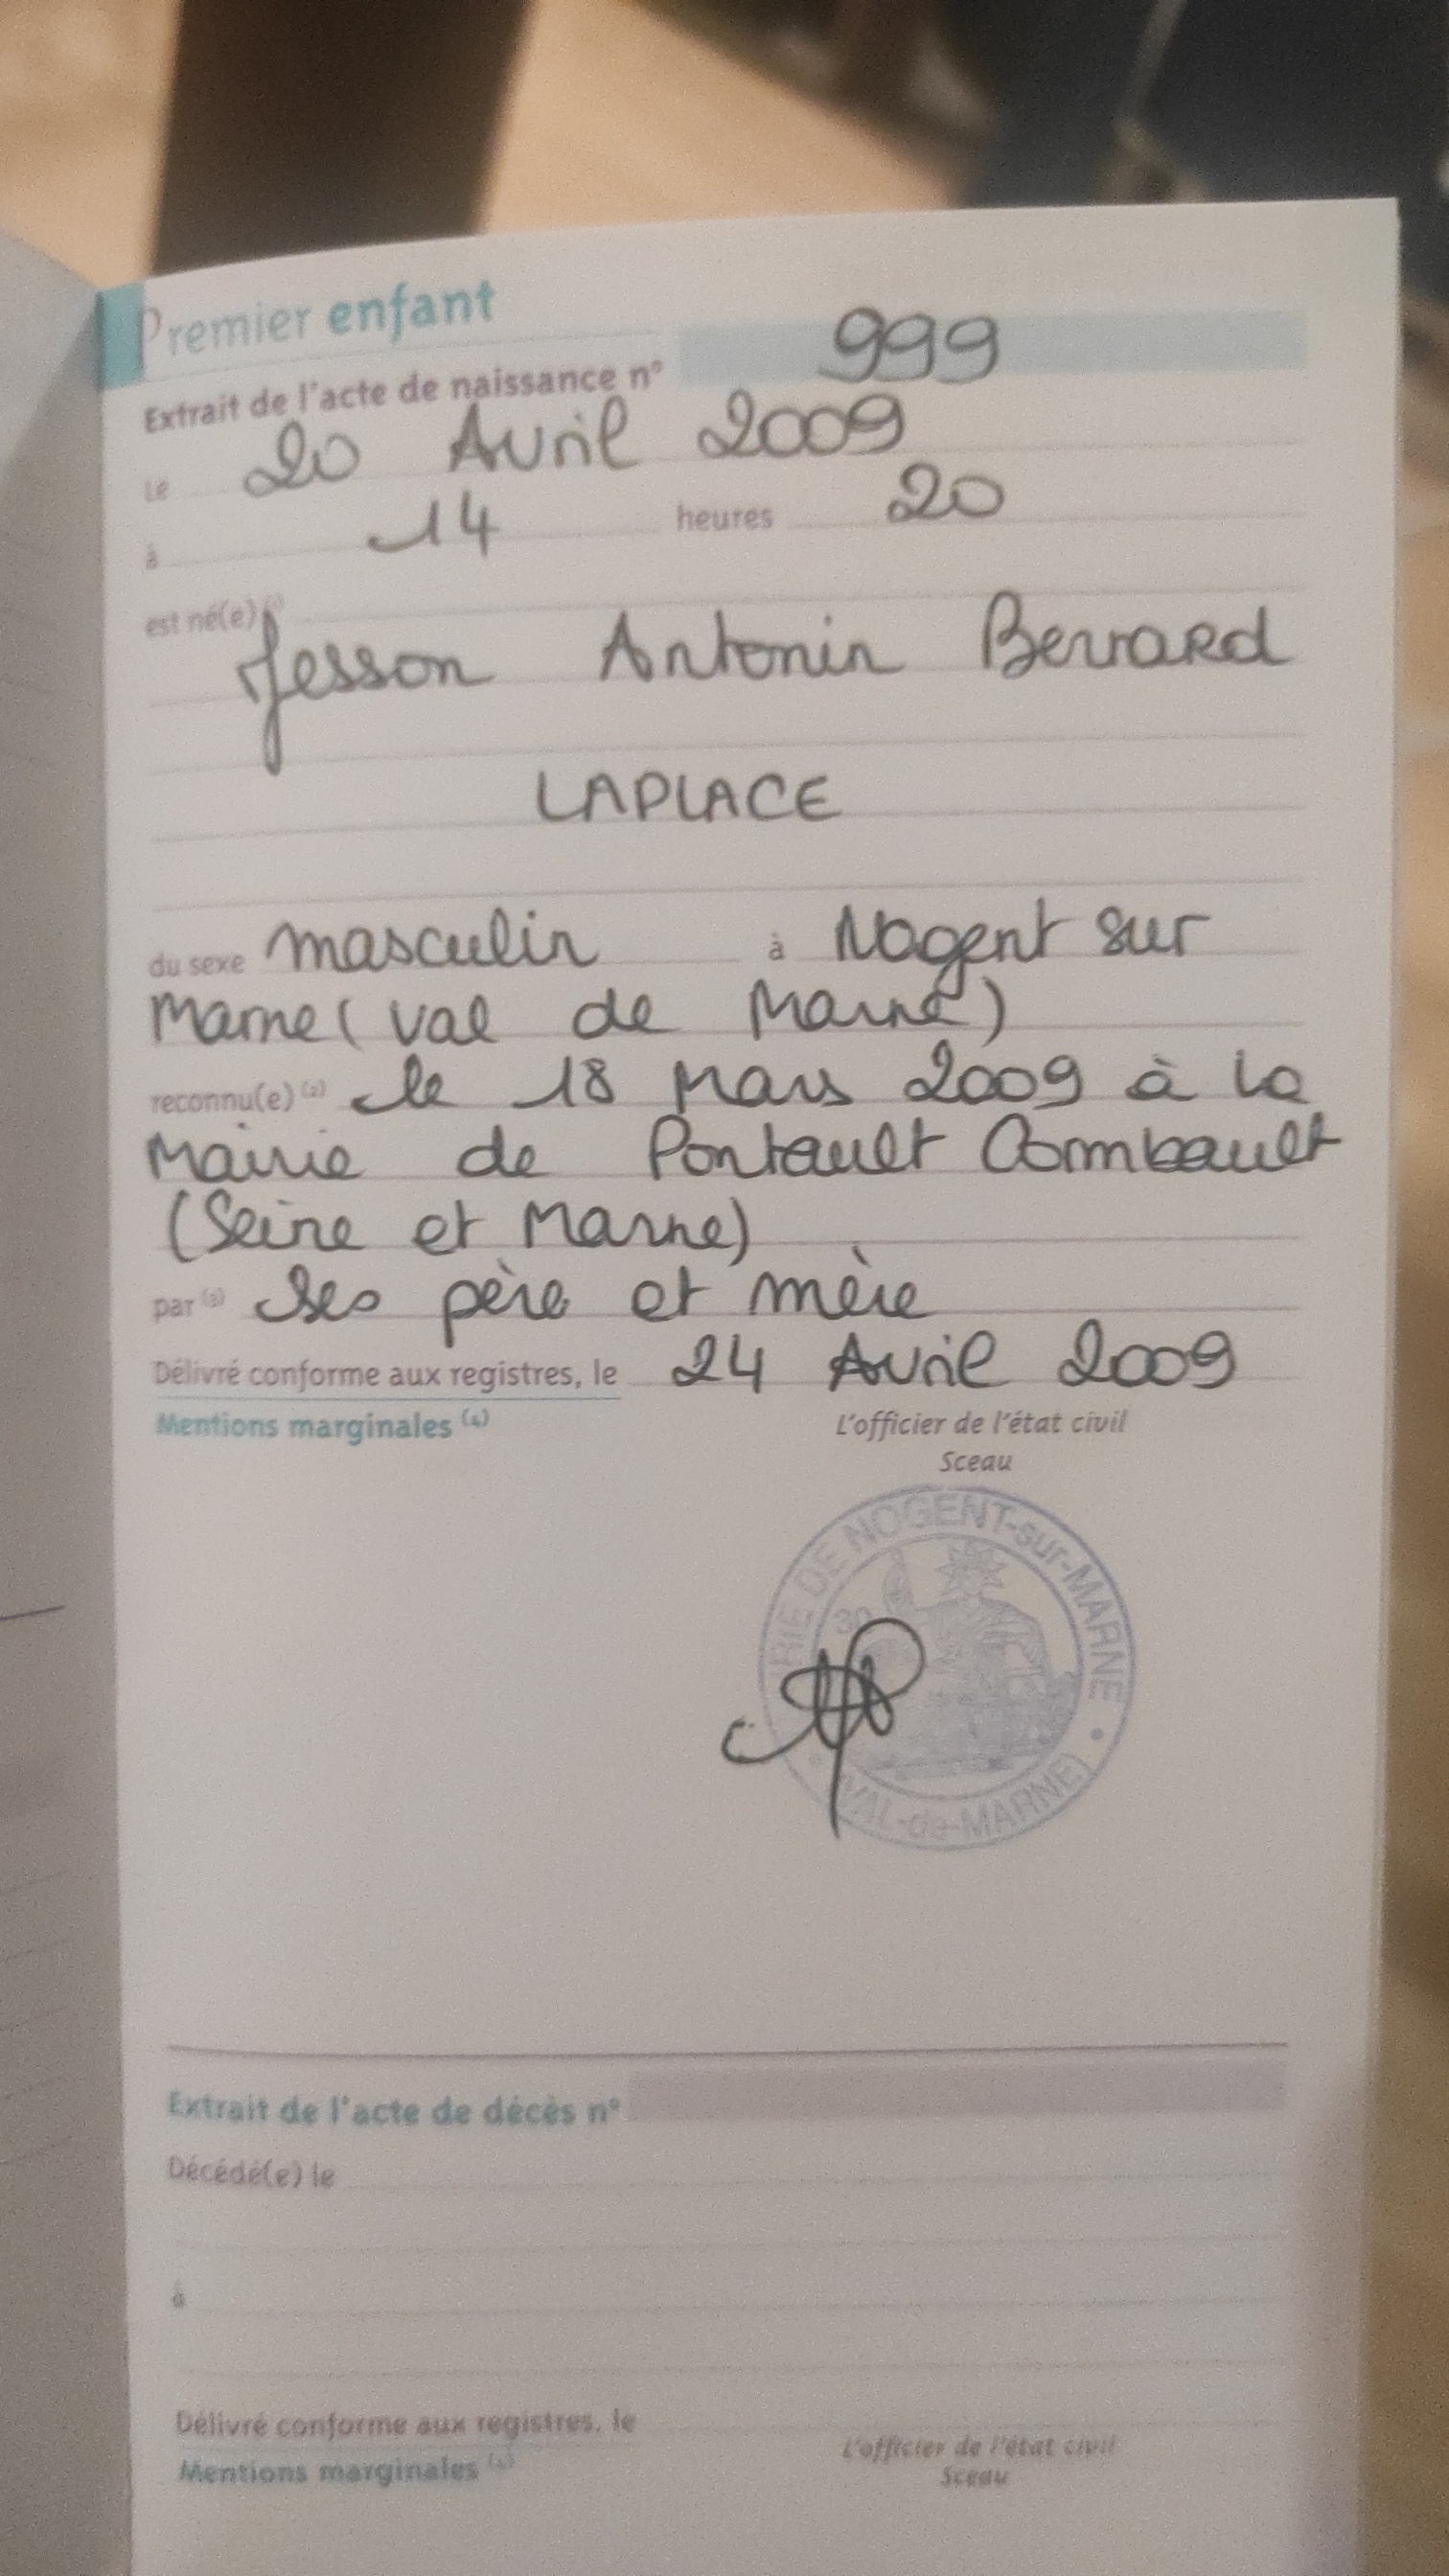 Premier enfant
Extrait de l'acte de naissance n° 999
Le 20 Avril 2009
à 14 heures 20
est né(e) (1)
Jesson Antonin Berrard
LAPLACE
du sexe masculin à Nogent sur
Marne (Val de Marne)
reconnu(e) (2) le 18 Mars 2009 à la
Mairie de Pontault Combault
(Seine et Marne)
par (3) ses père et mère
Délivré conforme aux registres, le 24 Avril 2009
Mentions marginales (4) L'officier de l'état civil
Sceau
RIE DE NOGENT-sur-MARNE
30
(VAL-de-MARNE)
Extrait de l'acte de décès n°
Décédé(e) le
à
Délivré conforme aux registres, le
L'officier de l'état civil
Mentions marginales (4) Sceau